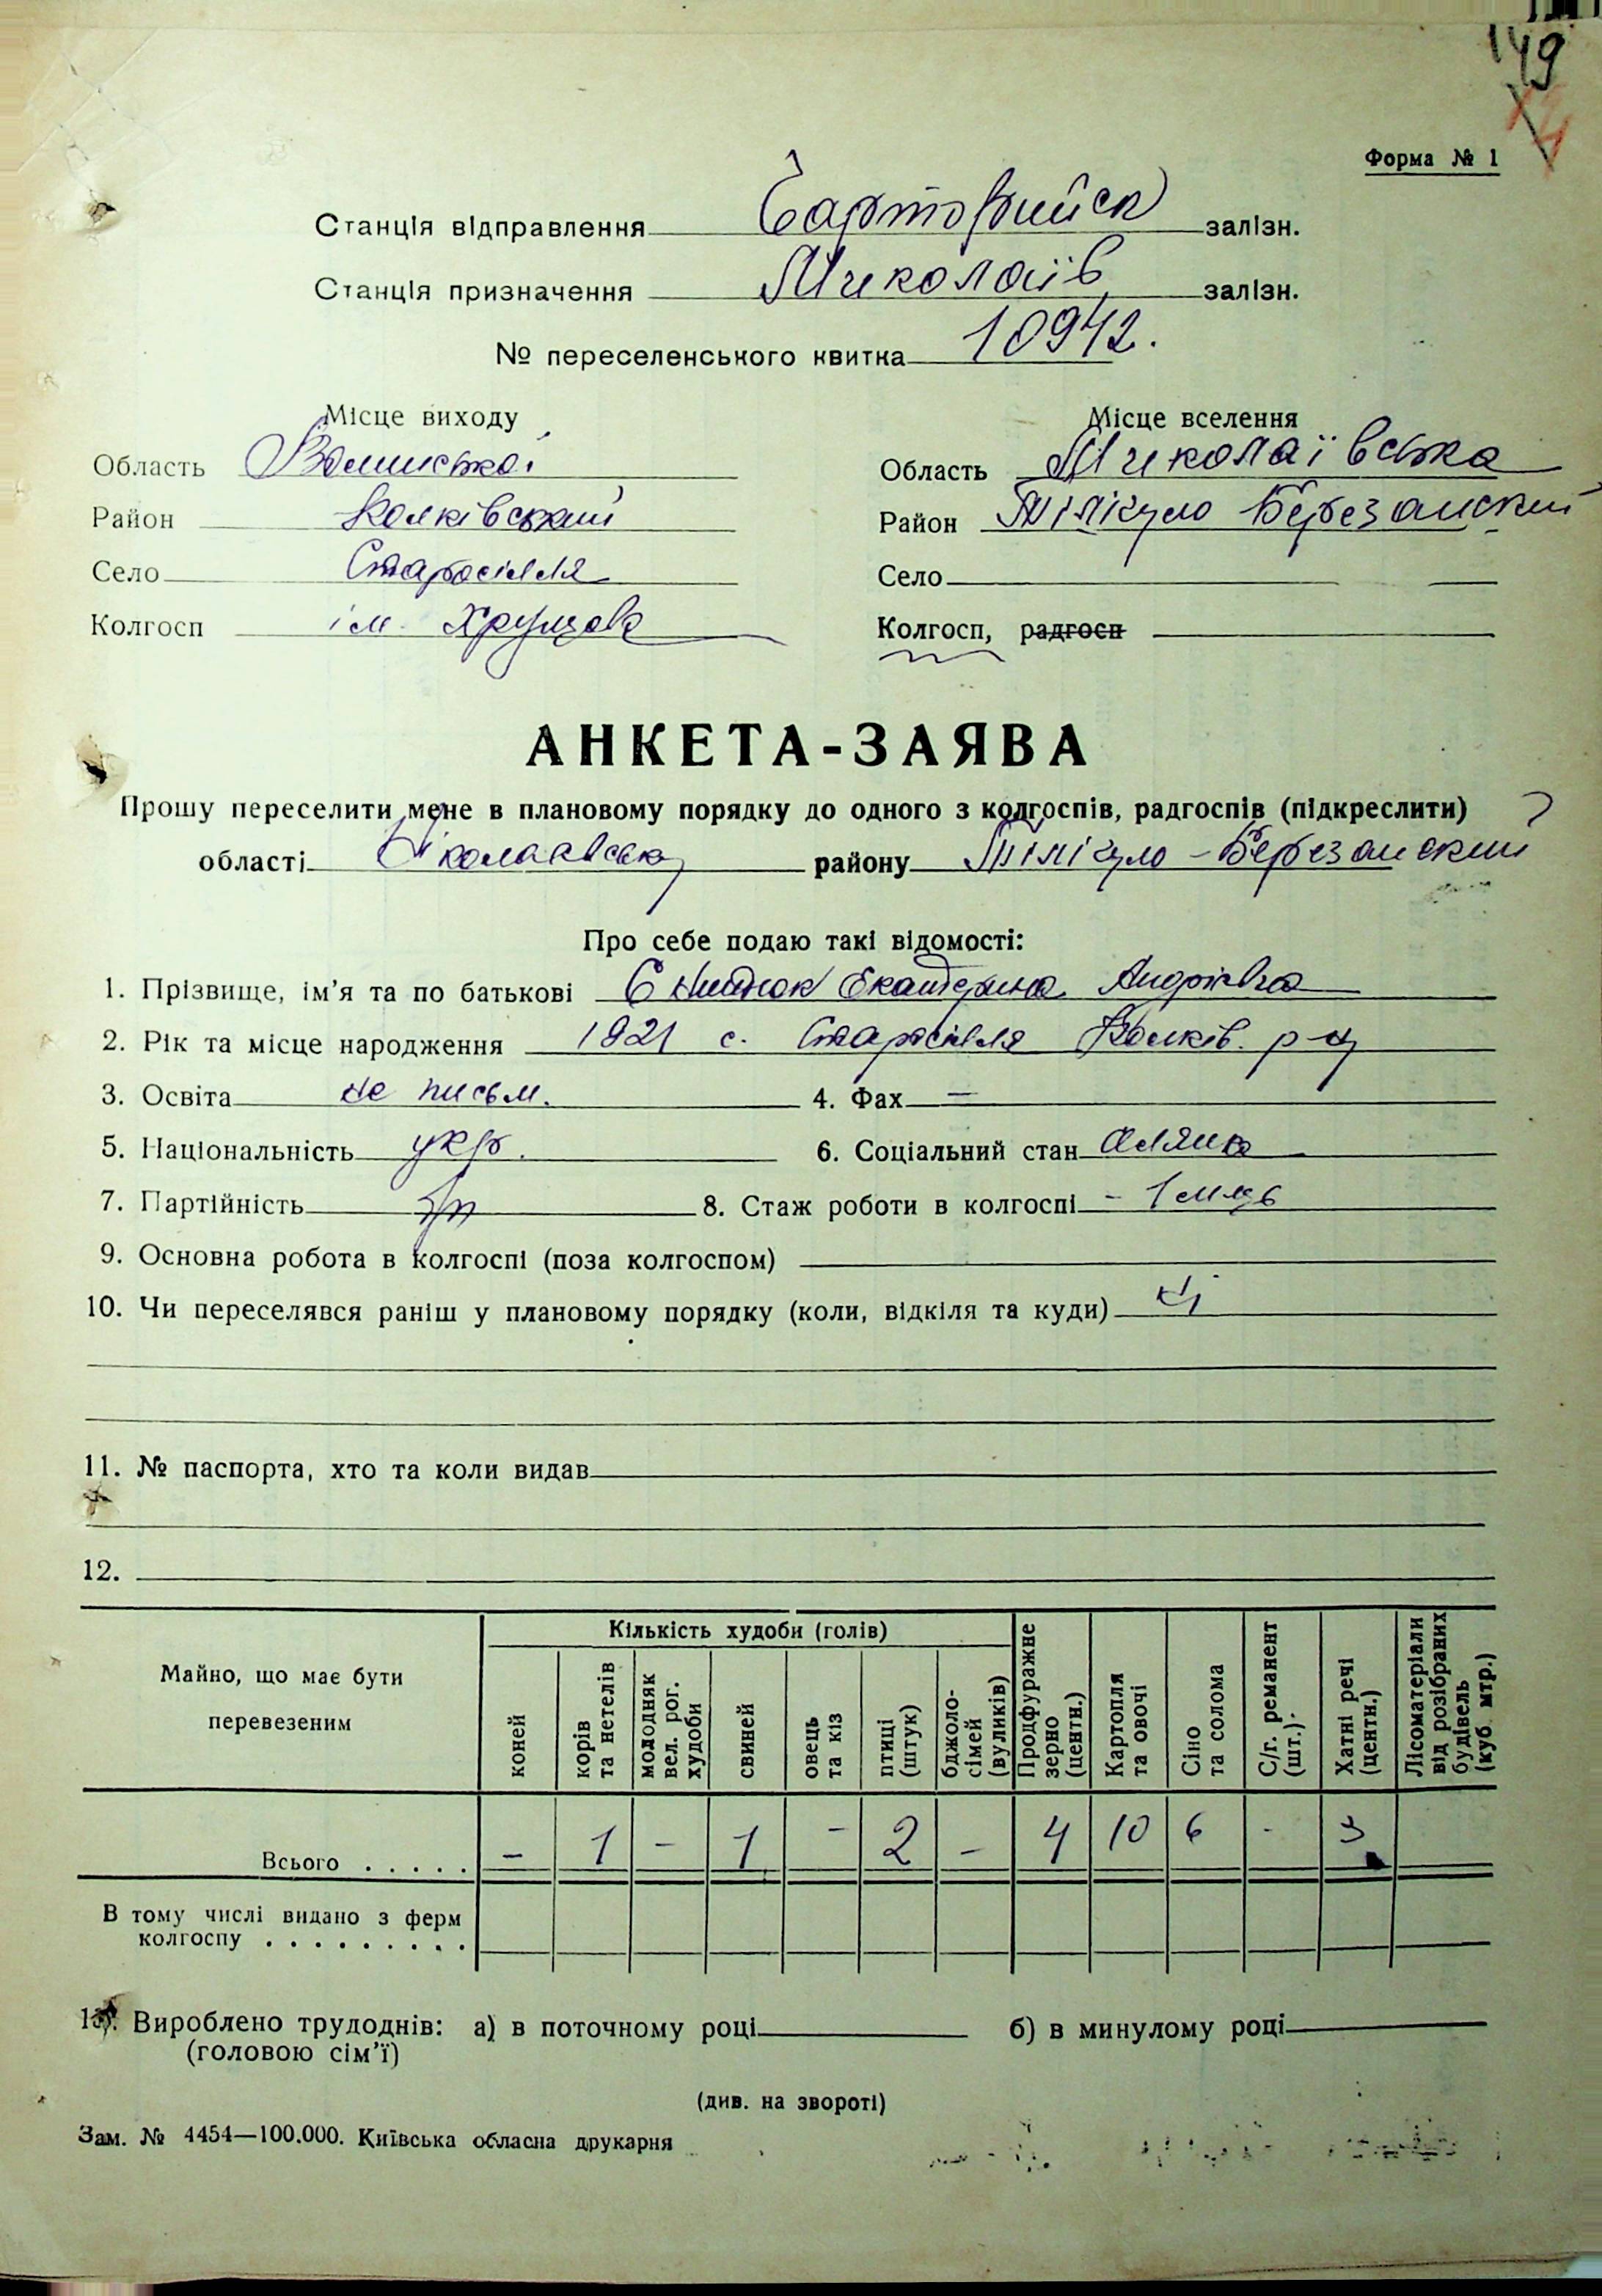 149
Форма № 1
Станція відправлення Чарторийск залізн.
Станція призначення Миколаїв залізн.
№ переселенського квитка 10942.
Місце виходу
Місце вселення
Область Волинської
Область Миколаївська
Район Колківський
Район Тилігуло Березанский
Село Старосілля
Село
Колгосп ім. Хрущова
Колгосп, радгосп
АНКЕТА-ЗАЯВА
Прошу переселити мене в плановому порядку до одного з колгоспів, радгоспів (підкреслити)
області району Тілігуло-Березанский
Про себе подаю такі відомості:
1. Прізвище, ім'я та по батькові Екатерина Андріївна
2. Рік та місце народження 1921 с. Старосілля Колків. р-н
3. Освіта не письм. 4. Фах —
5. Національність укр. 6. Соціальний стан
7. Партійність б/п 8. Стаж роботи в колгоспі -
9. Основна робота в колгоспі (поза колгоспом)
10. Чи переселявся раніш у плановому порядку (коли, відкіля та куди) ні
11. № паспорта, хто та коли видав
12.
Майно, що має бути перевезеним
Кількість худоби (голів)
коней
корів та нетелів
молодняк вел. рог. худоби
свиней
овець та кіз
птиці (штук)
бджоло-сімей (вуликів)
Продфуражне зерно (центн.)
Картопля та овочі
Сіно та солома
С/г. реманент (шт.)
Хатні речі (центн.)
Лісоматеріали від розібраних будівель (куб. мтр.)
Всього . . . . . – 1 – 1 – 2 – 4 10 6 - 3
В тому числі видано з ферм
колгоспу . . . . . . . . .
13. Вироблено трудоднів: а) в поточному році б) в минулому році
(головою сім'ї)
(див. на звороті)
Зам. № 4454—100.000. Київська обласна друкарня